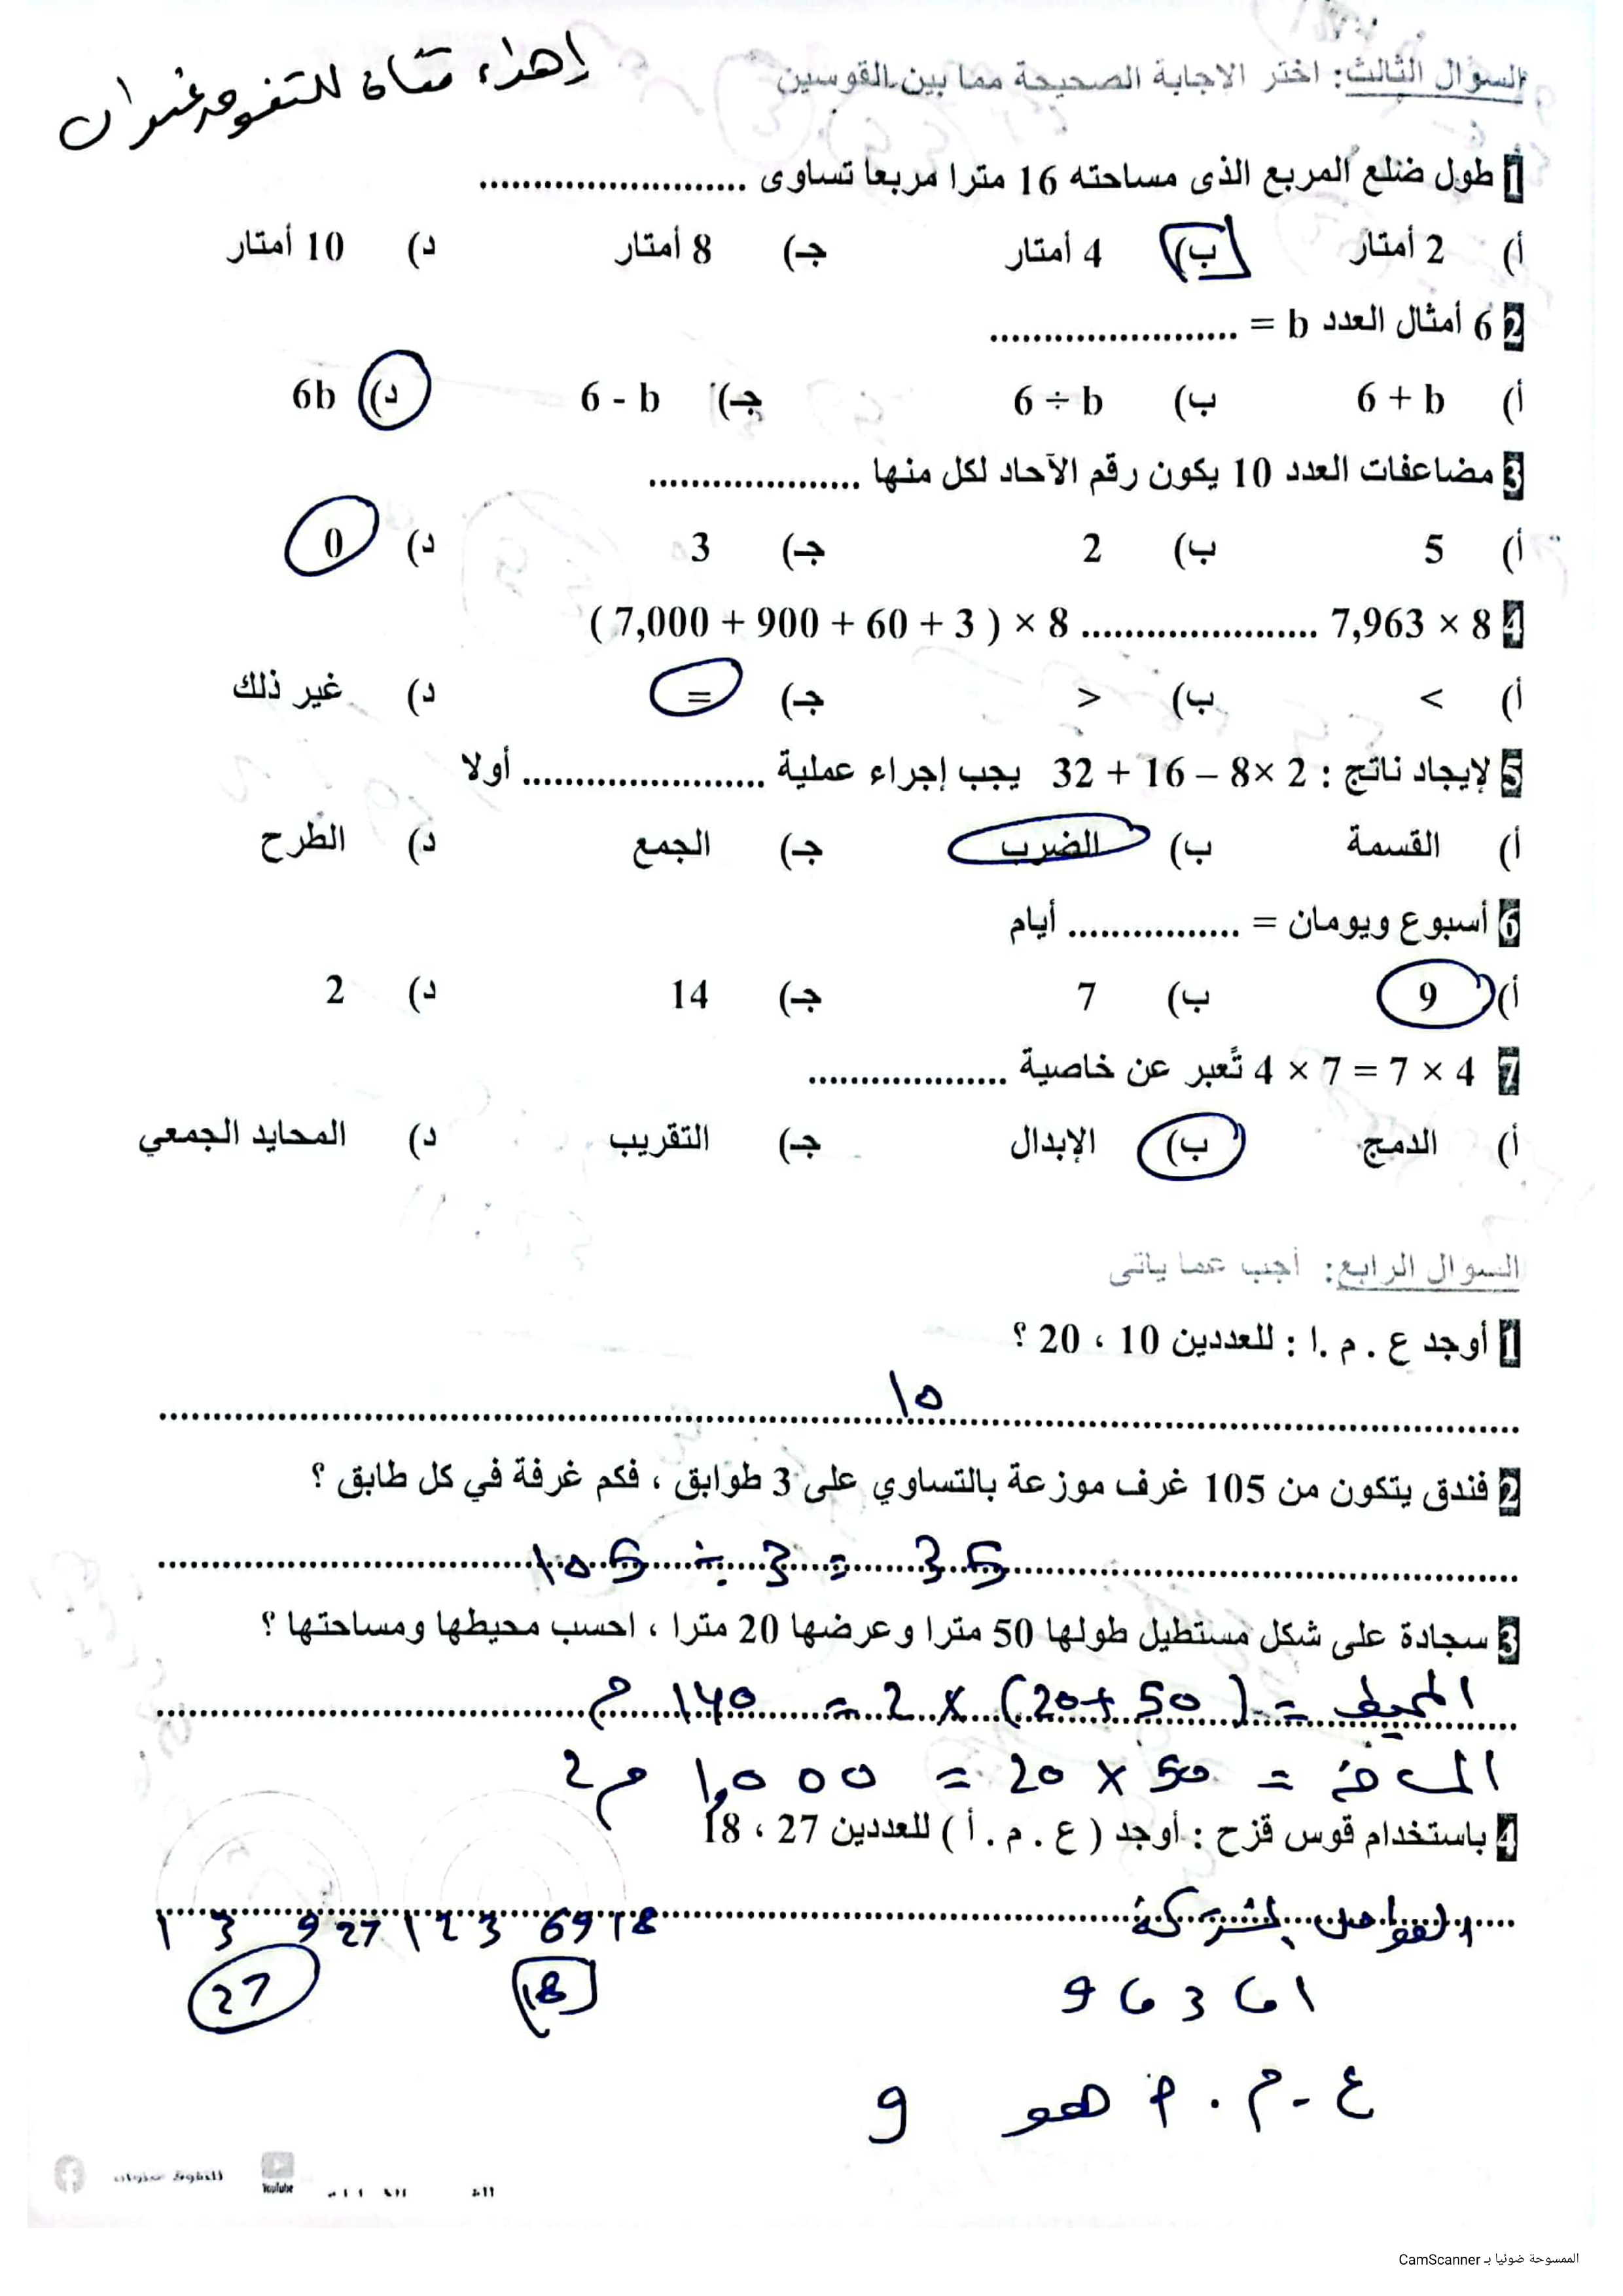 السؤال الثالث: اختر الاجابة الصحيحة مما بين القوسين
إهداء قناة للتفوق عنوان
1 طول ضلع المربع الذى مساحته 16 مترا مربعا تساوى ........................
أ) 2 أمتار ب) 4 أمتار جـ) 8 أمتار د) 10 أمتار
2 6 أمثال العدد b = ......................
أ) 6 + b ب) 6 ÷ b جـ) 6 - b د) 6b
3 مضاعفات العدد 10 يكون رقم الآحاد لكل منها ....................
أ) 5 ب) 2 جـ) 3 د) 0
4 7,963 × 8 ...................... ( 7,000 + 900 + 60 + 3 ) × 8
أ) < ب) > جـ) = د) غير ذلك
5 لإيجاد ناتج : 32 + 16 – 8× 2 يجب إجراء عملية ...................... أولا
أ) القسمة ب) الضرب جـ) الجمع د) الطرح
6 أسبوع ويومان = ................ أيام
أ) 9 ب) 7 جـ) 14 د) 2
7 4 × 7 = 7 × 4 تًعبر عن خاصية ...................
أ) الدمج ب) الإبدال جـ) التقريب د) المحايد الجمعي
السؤال الرابع: أجب عما ياتى
1 أوجد ع . م .ا : للعددين 10 ، 20 ؟
10
2 فندق يتكون من 105 غرف موزعة بالتساوي على 3 طوابق ، فكم غرفة في كل طابق ؟
105 ÷ 3 = 35
3 سجادة على شكل مستطيل طولها 50 مترا وعرضها 20 مترا ، احسب محيطها ومساحتها ؟
المحيط = (50 + 20) × 2 = 140 م
المساحة = 50 × 20 = 1,000 م2
4 باستخدام قوس قزح : أوجد ( ع . م . أ ) للعددين 27 ، 18
العوامل المشتركة 1 2 3 6 9 18 1 3 9 27
1 ، 3 ، 9 18 27
ع . م . أ هو 9
للتفوق عنوان YouTube
الممسوحة ضوئيا بـ CamScanner